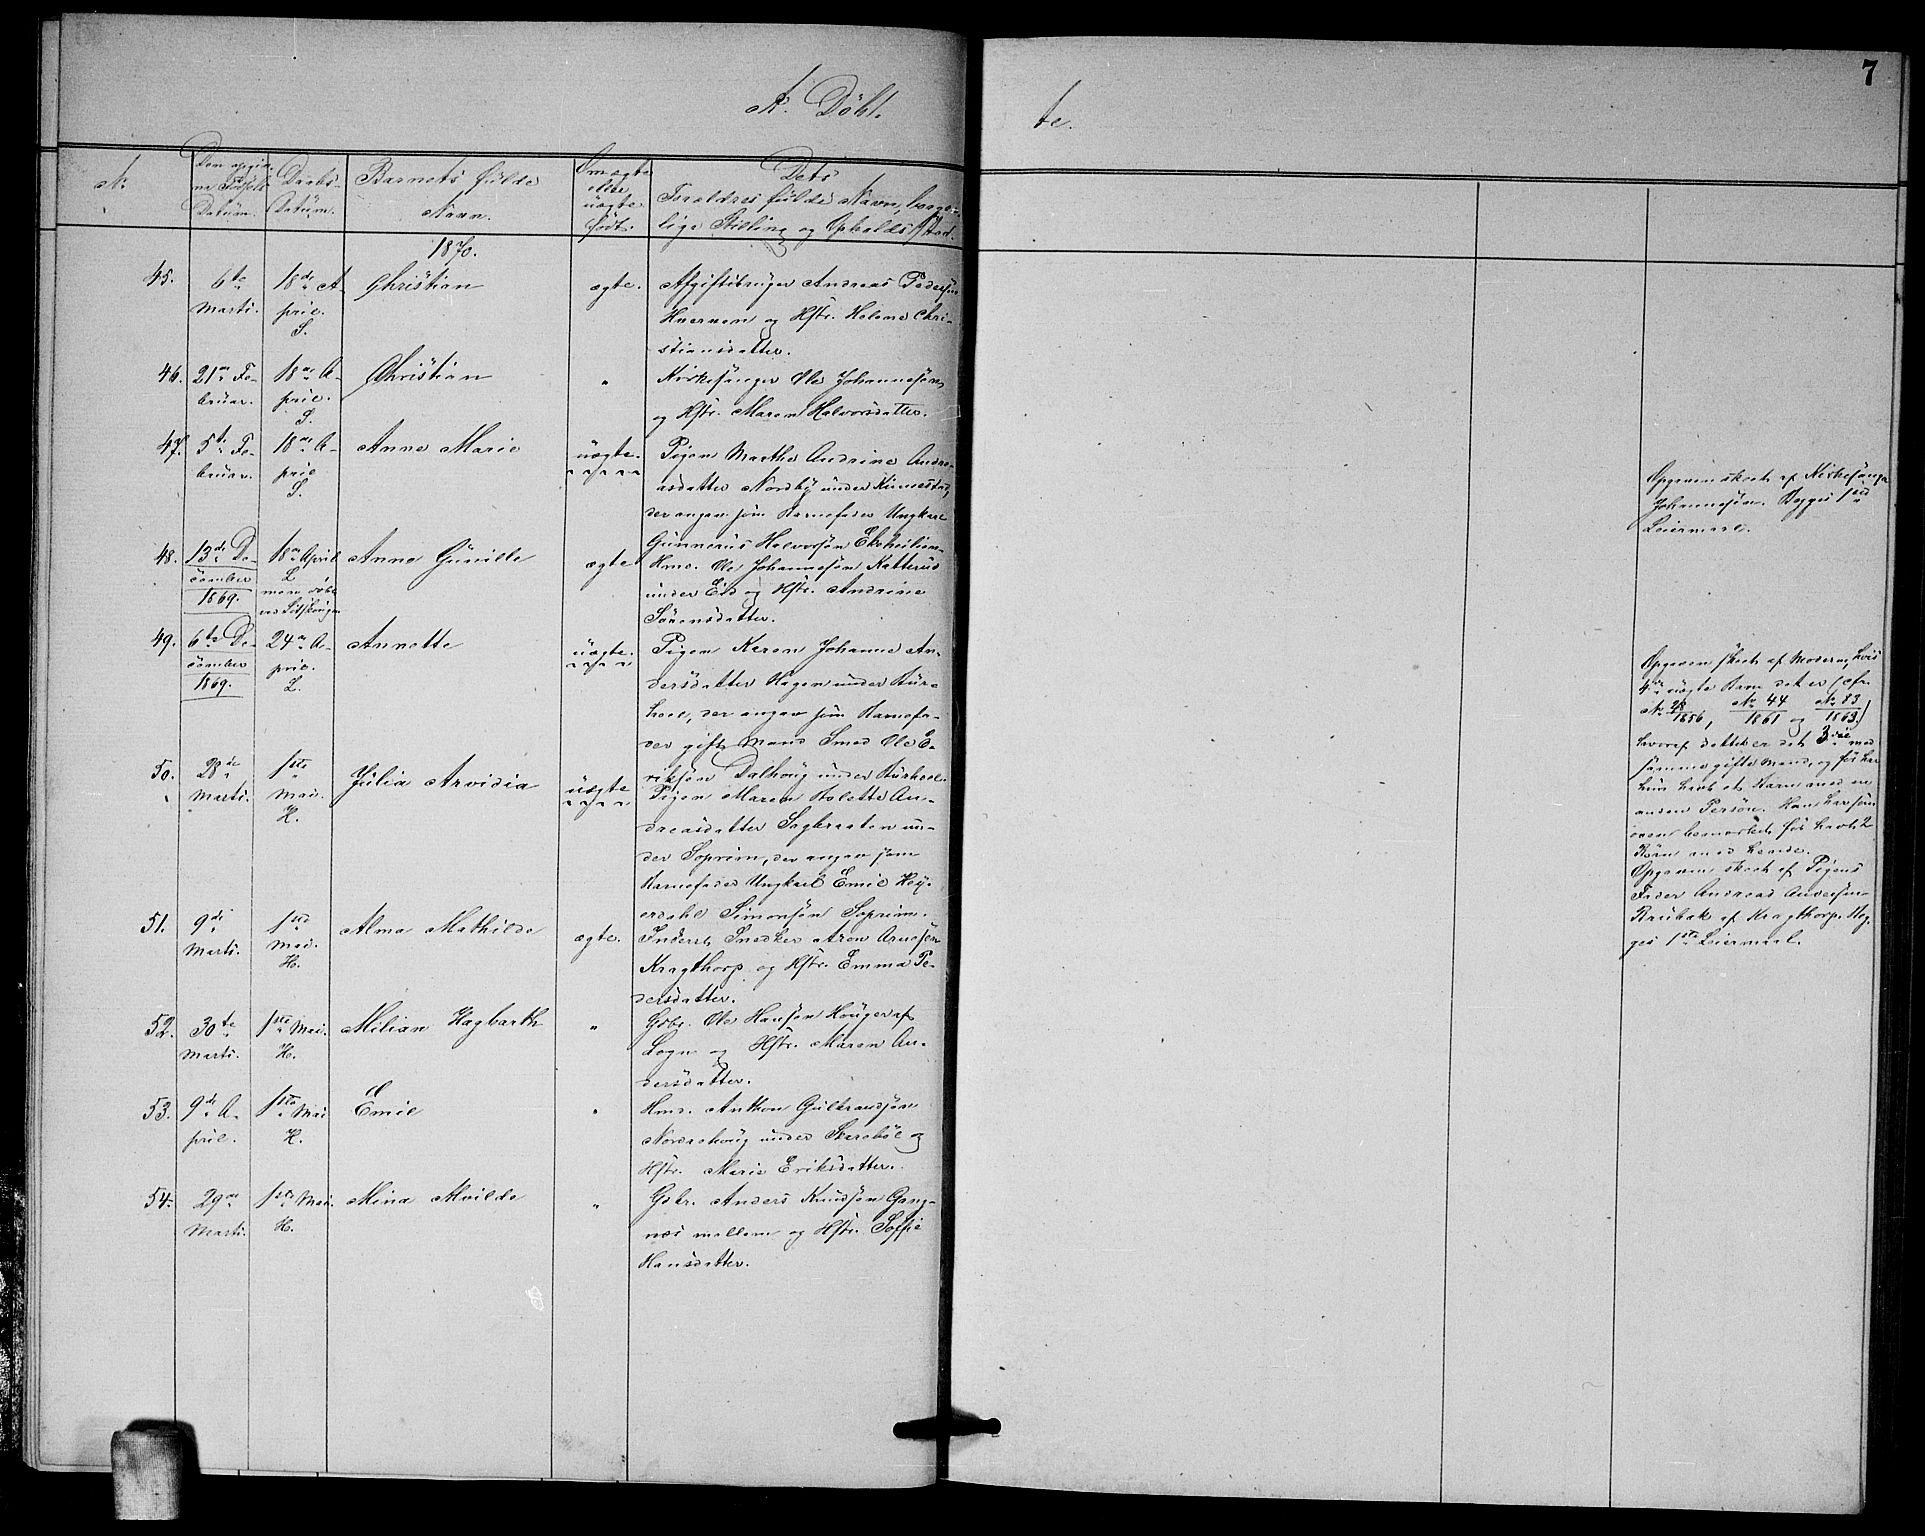 7
A. Døbt.
te.
No
Den opgiv-
ne Fødsels
Datum.
Daabs-
Datum.
Barnets fulde
Navn.
Om ægte
eller
uægte
født.
Dets
Forældres fulde Navn, borger-
lige Stilling og Opholdssted.
1870.
45. 6te Marts. 18de April. S. Christian ægte. Afgiftsbruger Andreas Pedersøn
Huerven og Hstr. Helene Chri-
stiansdatter.
46. 21de Februar. 18de April. S. Christian " Kirkesanger Ole Johannesøn
og Hstr. Maren Halvorsdatter.
47. 5te Februar. 18de April S. Anne Marie uægte. Pigen Marthe Andrine Andre-
asdatter Nordby under Kinnestad,
der angav som Barnefader Ungkarl
Gunnerus Halvorsøn
48. 13de December 1869. 18de April L Anne Gunille ægte Hmd. Ole Johannesøn Katterud
under Eid og Hstr. Andrine
Sørensdatter.
49. 6te December 1869. 24de April. L. Annette uægte. Pigen Karen Johanne An-
dersdatter Hagen under Aur-
hoel, der angav som Barnefa-
der gift Mand Smed Ole E-
riksøn Dalhoug under Aurhoel.
50. 28de Marts. 1ste Mai. H. Julia Arvidia uægte Pigen Maren Bolette An-
dreasdatter Sagbraaten un-
der Soprim, der angav som
Barnefader Ungkarl Emil Hey-
erdahl Simonsøn Soprim.
51. 9de Marts. 1ste Mai. H. Alma Mathilde ægte. Inderst, Snedker Aren Arnesøn
Kragthorp og Hstr. Emma Pe-
dersdatter.
52. 30te Marts. 1ste Mai. H. Milian Hagbarth " Gdbr. Ole Hansøn Houger af
Sogn og Hstr. Maren An-
dersdatter.
53. 9de April. 1ste Mai H. Emil " Hmd. Anthon Gulbrandsøn
Nordrehoug under Skarebøl og
Hstr. Marie Eriksdatter.
54. 29de Marts. 1ste Mai. H. Mina Mvilde " Gdbr. Anders Knudsøn Gang-
næs mellem og Hstr. Soffie
Hansdatter.
Opgaven skeet af Kirkesanger
Johannesøn. Begges 1ste
Leiermaal.
Opgaven skeet af Moderen, hvis
4de uægte Barn det er (cfr.
No 28/1856, No 44/1861 og No 83/1863)
hvoraf dette er det 3die med
samme gifte Mand, og før har
hun havt et Barn med en
anden Person. Han har som
oven bemærket før havt 2
Børn med hende.
Opgaven skeet af Pigens
Fader Andreas Andersøn
Brubak af Kragthorp. Beg-
ges 1ste Leiermaal.